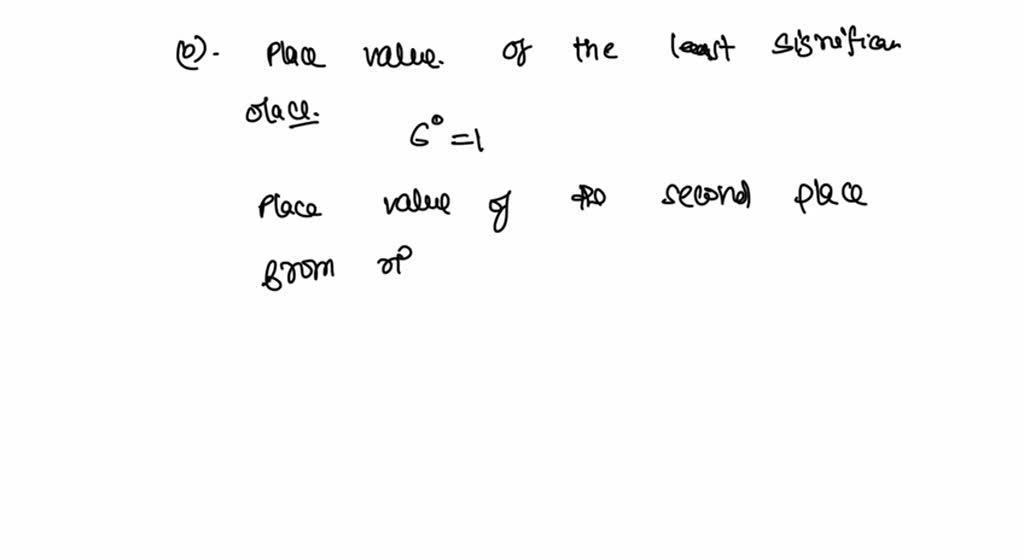 (b). Place value. of the least significan
place.
6⁰ = 1
Place value of second place
from